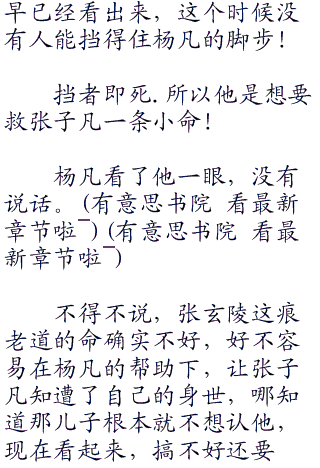 早已经看出来，这个时候没
有人能挡得住杨凡的脚步！
挡者即死.所以他是想要
救张子凡一条小命！
杨凡看了他一眼，没有
说话。(有意思书院 看最新
章节啦¯)(有意思书院 看最
新章节啦¯)
不得不说，张玄陵这痕
老道的命确实不好，好不容
易在杨凡的帮助下，让张子
凡知遭了自己的身世，哪知
道那儿子根本就不想认他，
现在看起来，搞不好还要